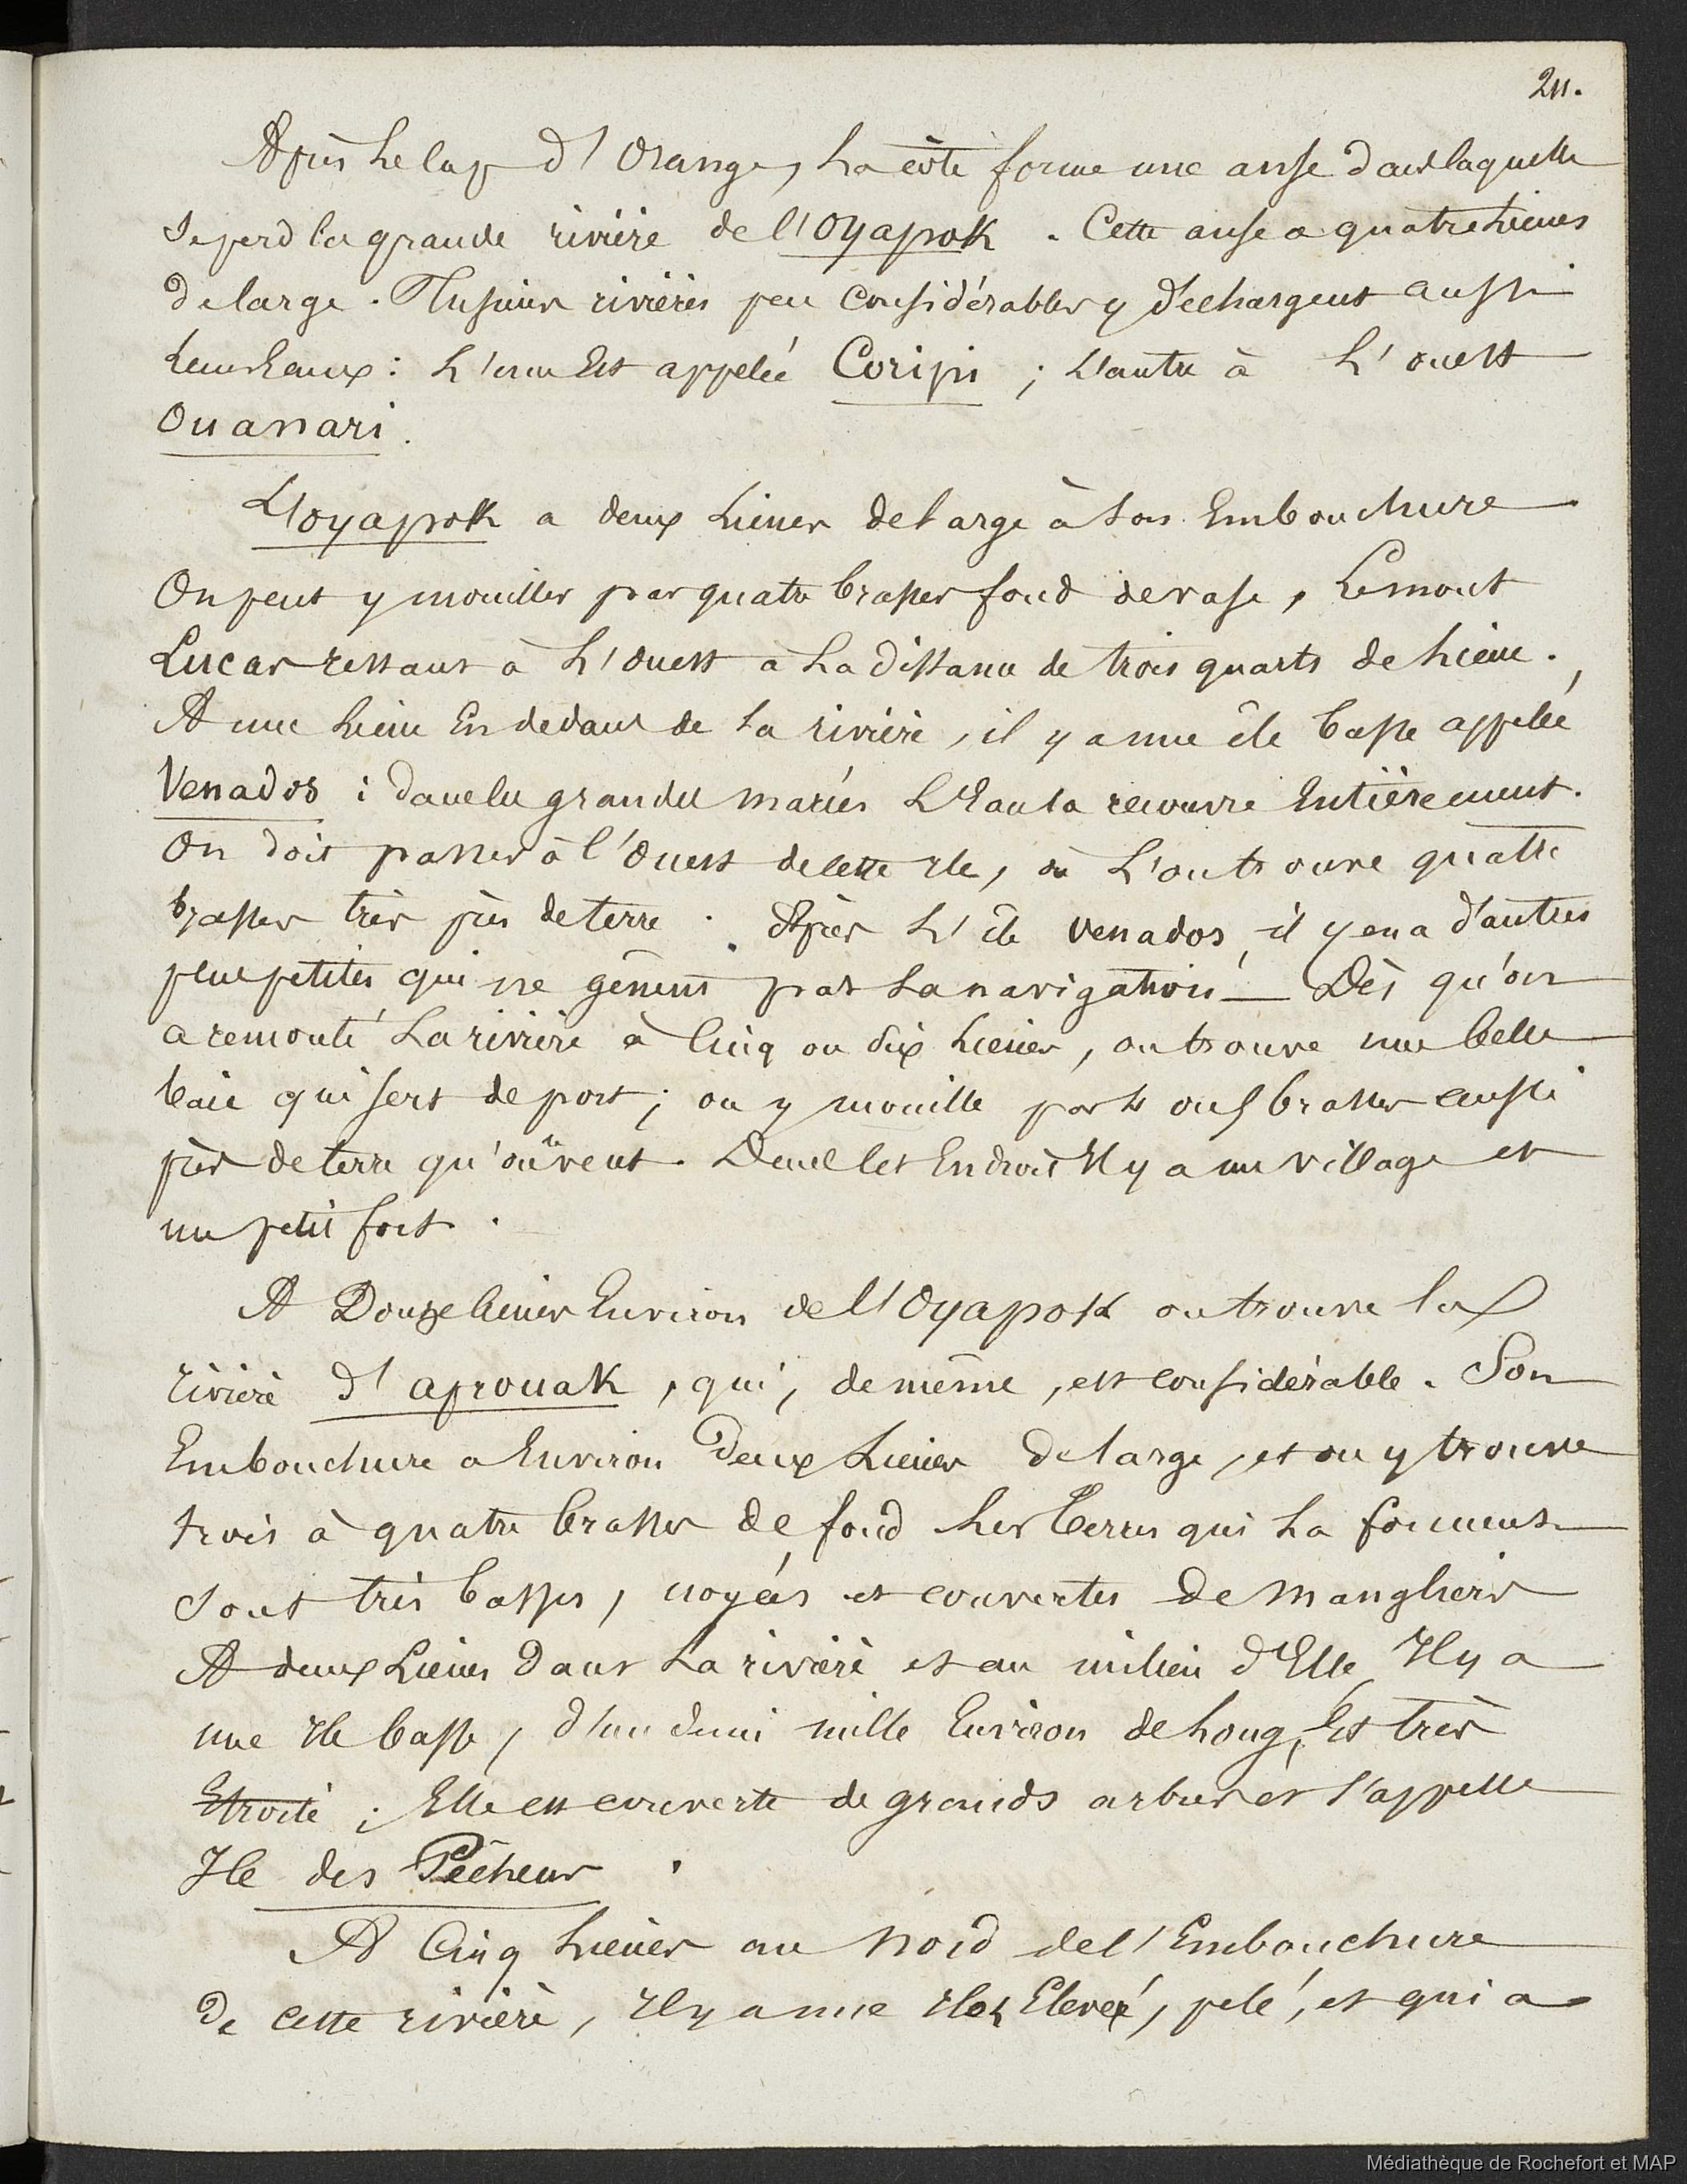 211.
Après le Cap d'Orange, la côte forme une anse dans laquelle
se perd la grande rivière de l'Oyapok. Cette anse a quatre lieues
de large. Plusieurs rivières peu considérables y déchargent aussi
leurs Eaux: L'une Est appelée Coripi; l'autre à l'ouest
Ouanari.
L'oyapok a deux lieues de large à son Embouchure
On peut y mouiller par quatre brasses fond de vase, Le mont
Lucas restant à l'Ouest à la distance de trois quarts de lieue.
A une lieue En dedans de la rivière, il y a une île basse appelée
Venados: dans les grandes marées L'Eau la recouvre Entièrement.
On doit passer à l'Ouest de cette Ile, où L'on trouve quatre
brasses très près de terre. Après L'île Venados, il y en a d'autres
plus petites qui ne gênent pas la navigation — Dès qu'on
a remonté La rivière à Cinq ou dix lieues, on trouve une belle
baie qui sert de port; on y mouille par 4 ou 5 brasses aussi
près de terre qu'on veut. Dans cet Endroit Il y a un village et
un petit fort.
A Douze lieues Environ de l'Oyapok on trouve la
rivière d'aprouak, qui, de même, est considérable. Son
Embouchure a Environ Deux Lieues de large, et on y trouve
trois à quatre brasses de fond Les terres qui la forment
sont très basses, noyées et couvertes de Mangliers
A deux Lieues dans La rivière et au milieu d'Elle, Il y a
une Ile basse, d'un demi mille Environ de long, Est très
Etroite; Elle est couverte de grands arbres et s'appelle
Ile des Pêcheurs.
A Cinq Lieues au Nord de l'Embouchure
De cette rivière, Il y a une Ilot Elevé, pelé, et qui a
Médiathèque de Rochefort et MAP